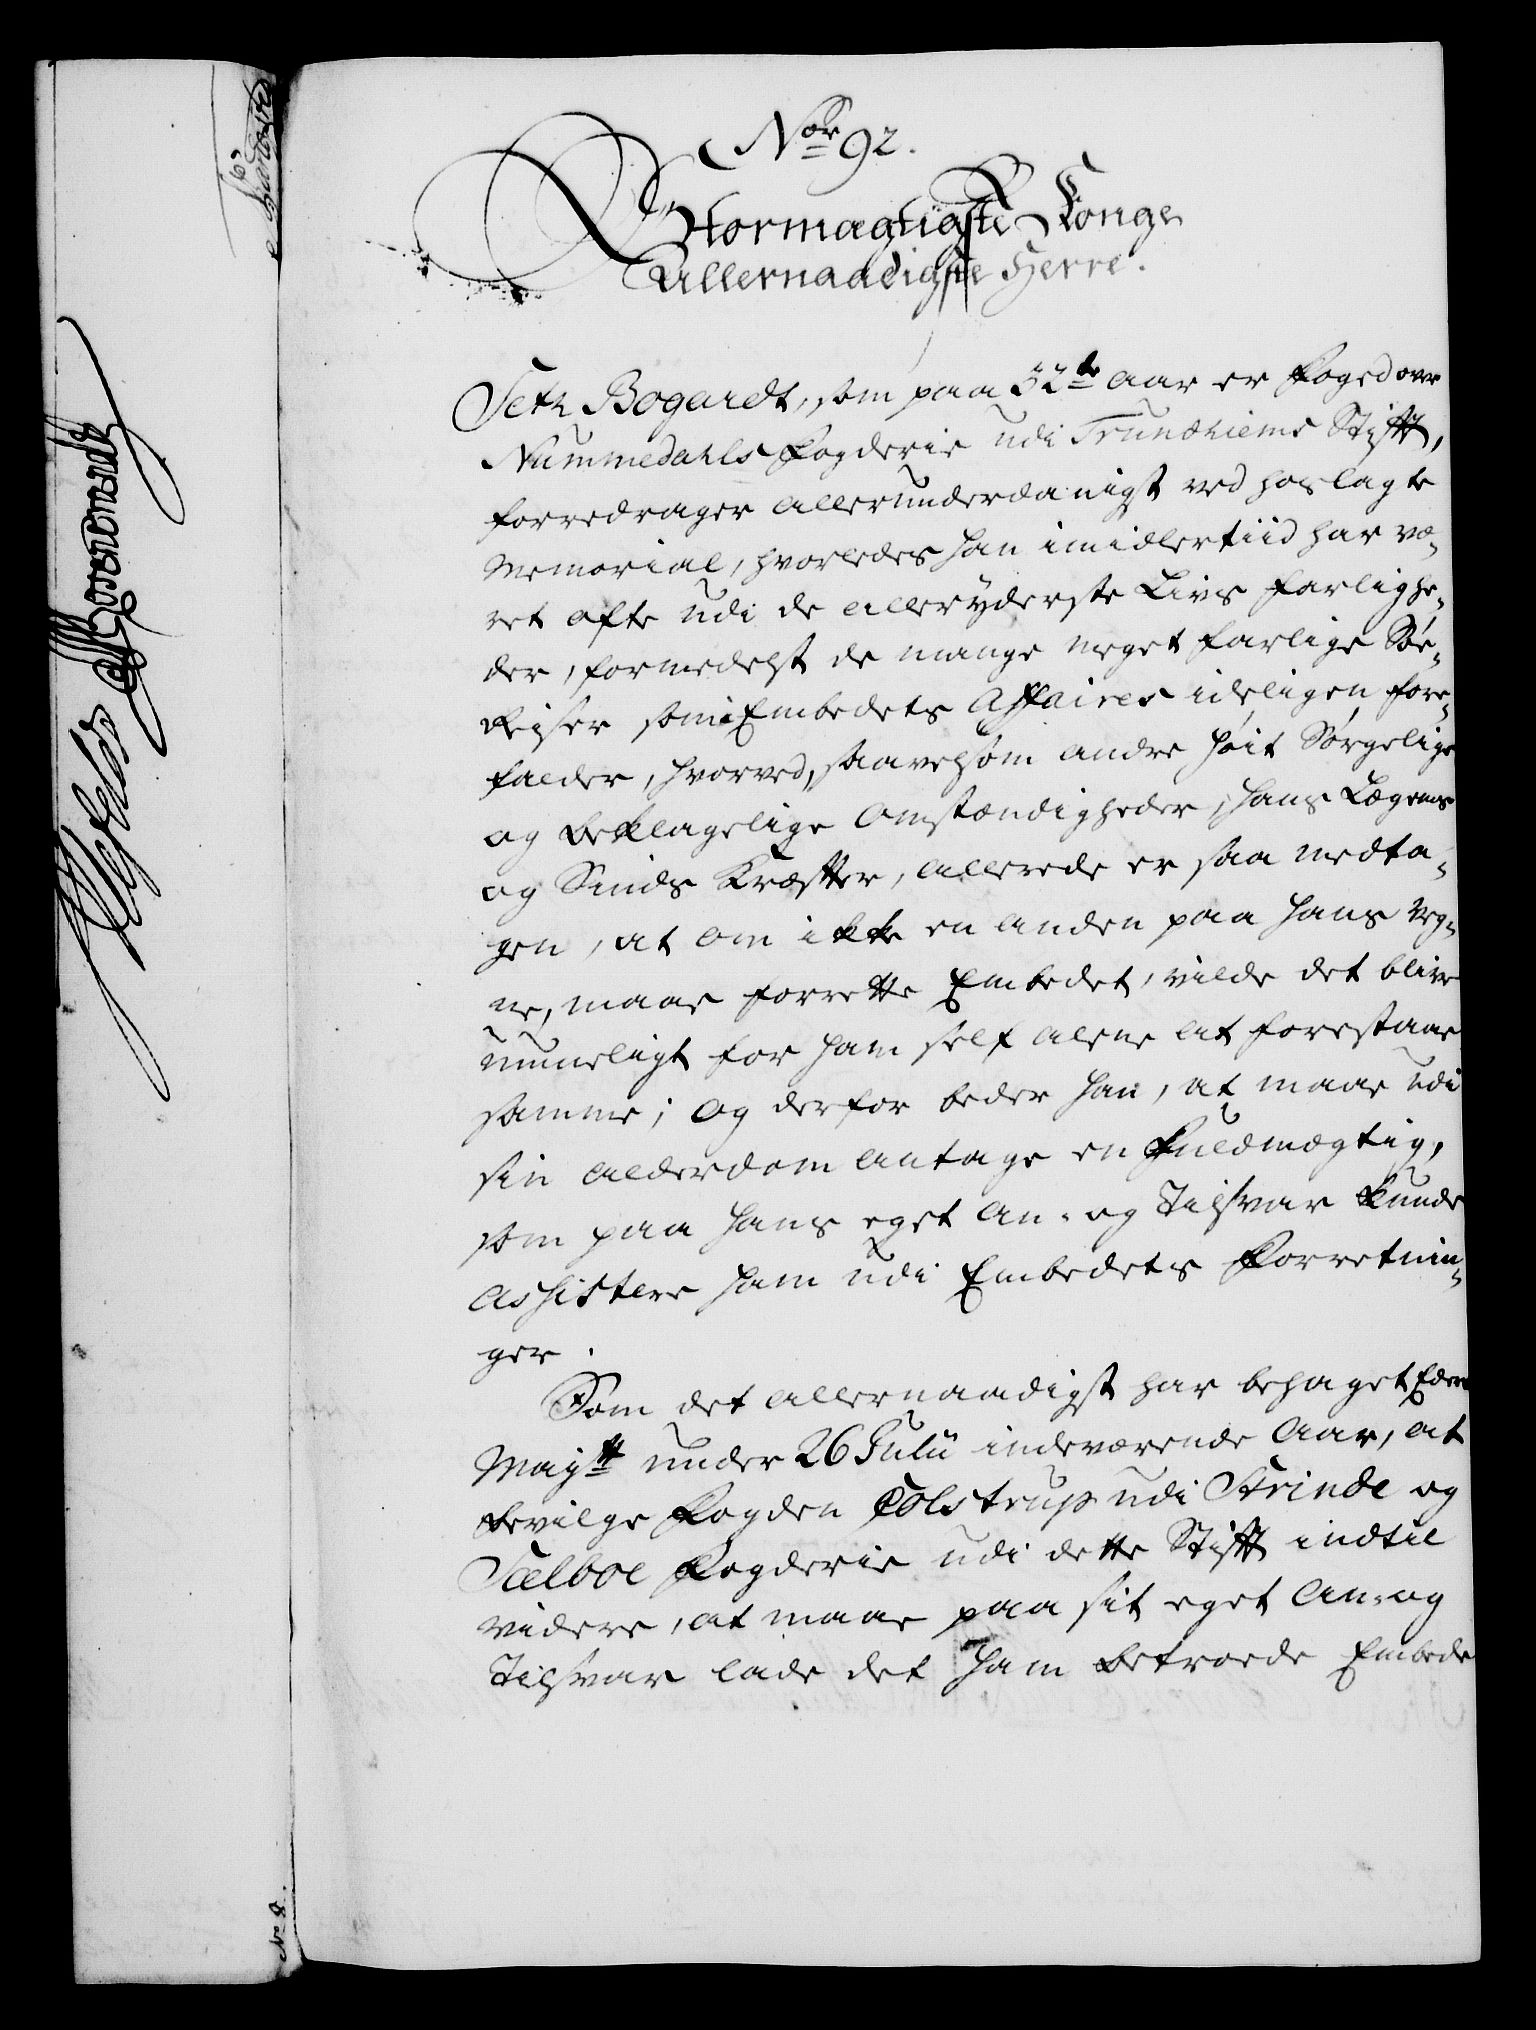 No 92.
Stormægtigste Konge
Allernaadigste Herre.
Seth Bogardt, som paa 32te Aar er Foged over
Nummedahls Fogderie udi Trundhiems Stift,
forredrager allerunderdanigst ved hoslagte
Memorial, hvorledes han imidlertiid har væ-
ret ofte udi de alleryderste Livs farlighe-
der, formedelst de mange meget farlige Søe-
Reiser som i Embedets Affaires ideligen fore-
falder, hvorved, saavelsom andre høit Sørgelige
og beklagelige Omstændigheder, hans Legems
og Sinds Kræfter, allerede er saa medta-
gen, at om ikke en anden paa hans Veg-
ne, maae forrette Embedet, vilde det blive
umueligt for ham self alene at forestaae
samme; og derfor beder han, at maae udi
sin Alderdom antage en Fuldmægtig,
som paa hans eget An- og Tilsvar kunde
assistere ham udi Embedets Forretnin-
ger.
Som det allernaadigst har behaget Eders
Maytt under 26 Julii indeværende Aar, at
bevilge Fogden Colstrup udi Strinde og
Sælboe Fogderie udi dette Stift indtil
videre, at maae paa sit eget An- og
Tilsvar lade det ham betroede Embede
No 8.